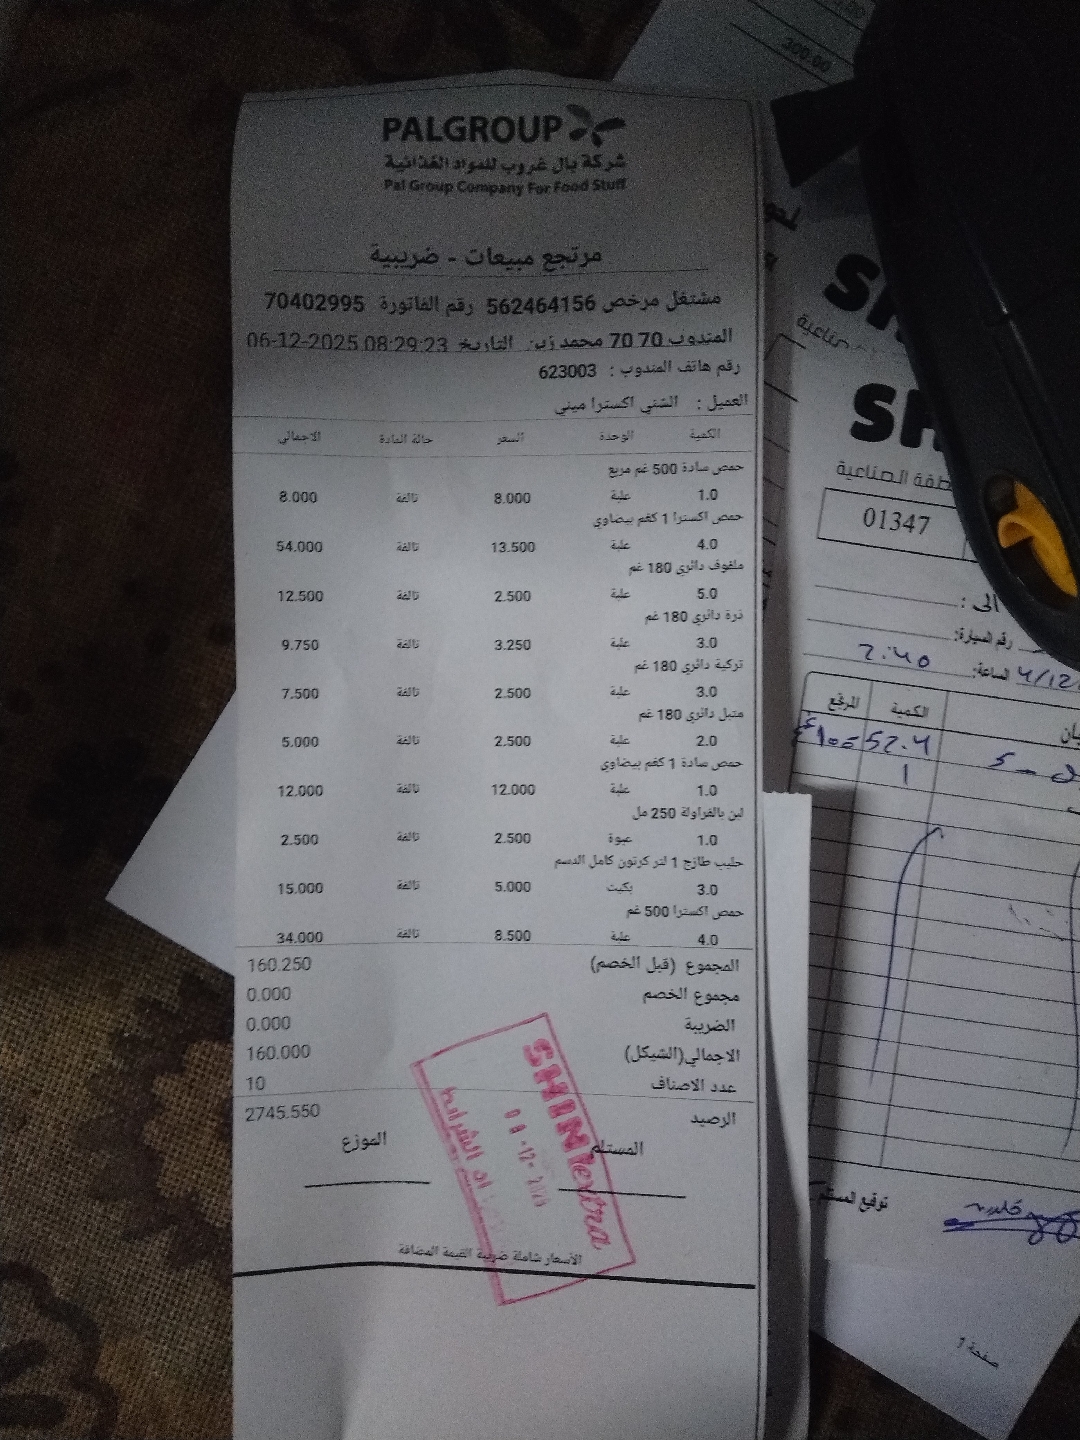 PALGROUP
شركة بال غروب للمواد الغذائية
Pal Group Company For Food Stuff
مرتجع مبيعات - ضريبية
مشتغل مرخص 562464156 رقم الفاتورة 70402995
المندوب 70 70 محمد زين التاريخ 06-12-2025 08:29:23
رقم هاتف المندوب : 623003
العميل : الشني اكسترا ميني
الكمية الوحدة السعر حالة المادة الاجمالي
حمص سادة 500 غم مربع
1.0 علبة 8.000 تالفة 8.000
حمص اكسترا 1 كغم بيضاوي
4.0 علبة 13.500 تالفة 54.000
ملفوف دائري 180 غم
5.0 علبة 2.500 تالفة 12.500
ذرة دائري 180 غم
3.0 علبة 3.250 تالفة 9.750
تركية دائري 180 غم
3.0 علبة 2.500 تالفة 7.500
متبل دائري 180 غم
2.0 علبة 2.500 تالفة 5.000
حمص سادة 1 كغم بيضاوي
1.0 علبة 12.000 تالفة 12.000
لبن بالفراولة 250 مل
1.0 عبوة 2.500 تالفة 2.500
حليب طازج 1 لتر كرتون كامل الدسم
3.0 بكيت 5.000 تالفة 15.000
حمص اكسترا 500 غم
4.0 علبة 8.500 تالفة 34.000
المجموع (قبل الخصم) 160.250
مجموع الخصم 0.000
الضريبة 0.000
الاجمالي(الشيكل) 160.000
عدد الاصناف 10
الرصيد 2745.550
المستلم الموزع
SHINI extra
الأسعار شاملة ضريبة القيمة المضافة
300.00
01347
الى :
رقم السيارة:
الساعة: 2:40
الكمية المرقع
توقيع المستلم
صفحة 1